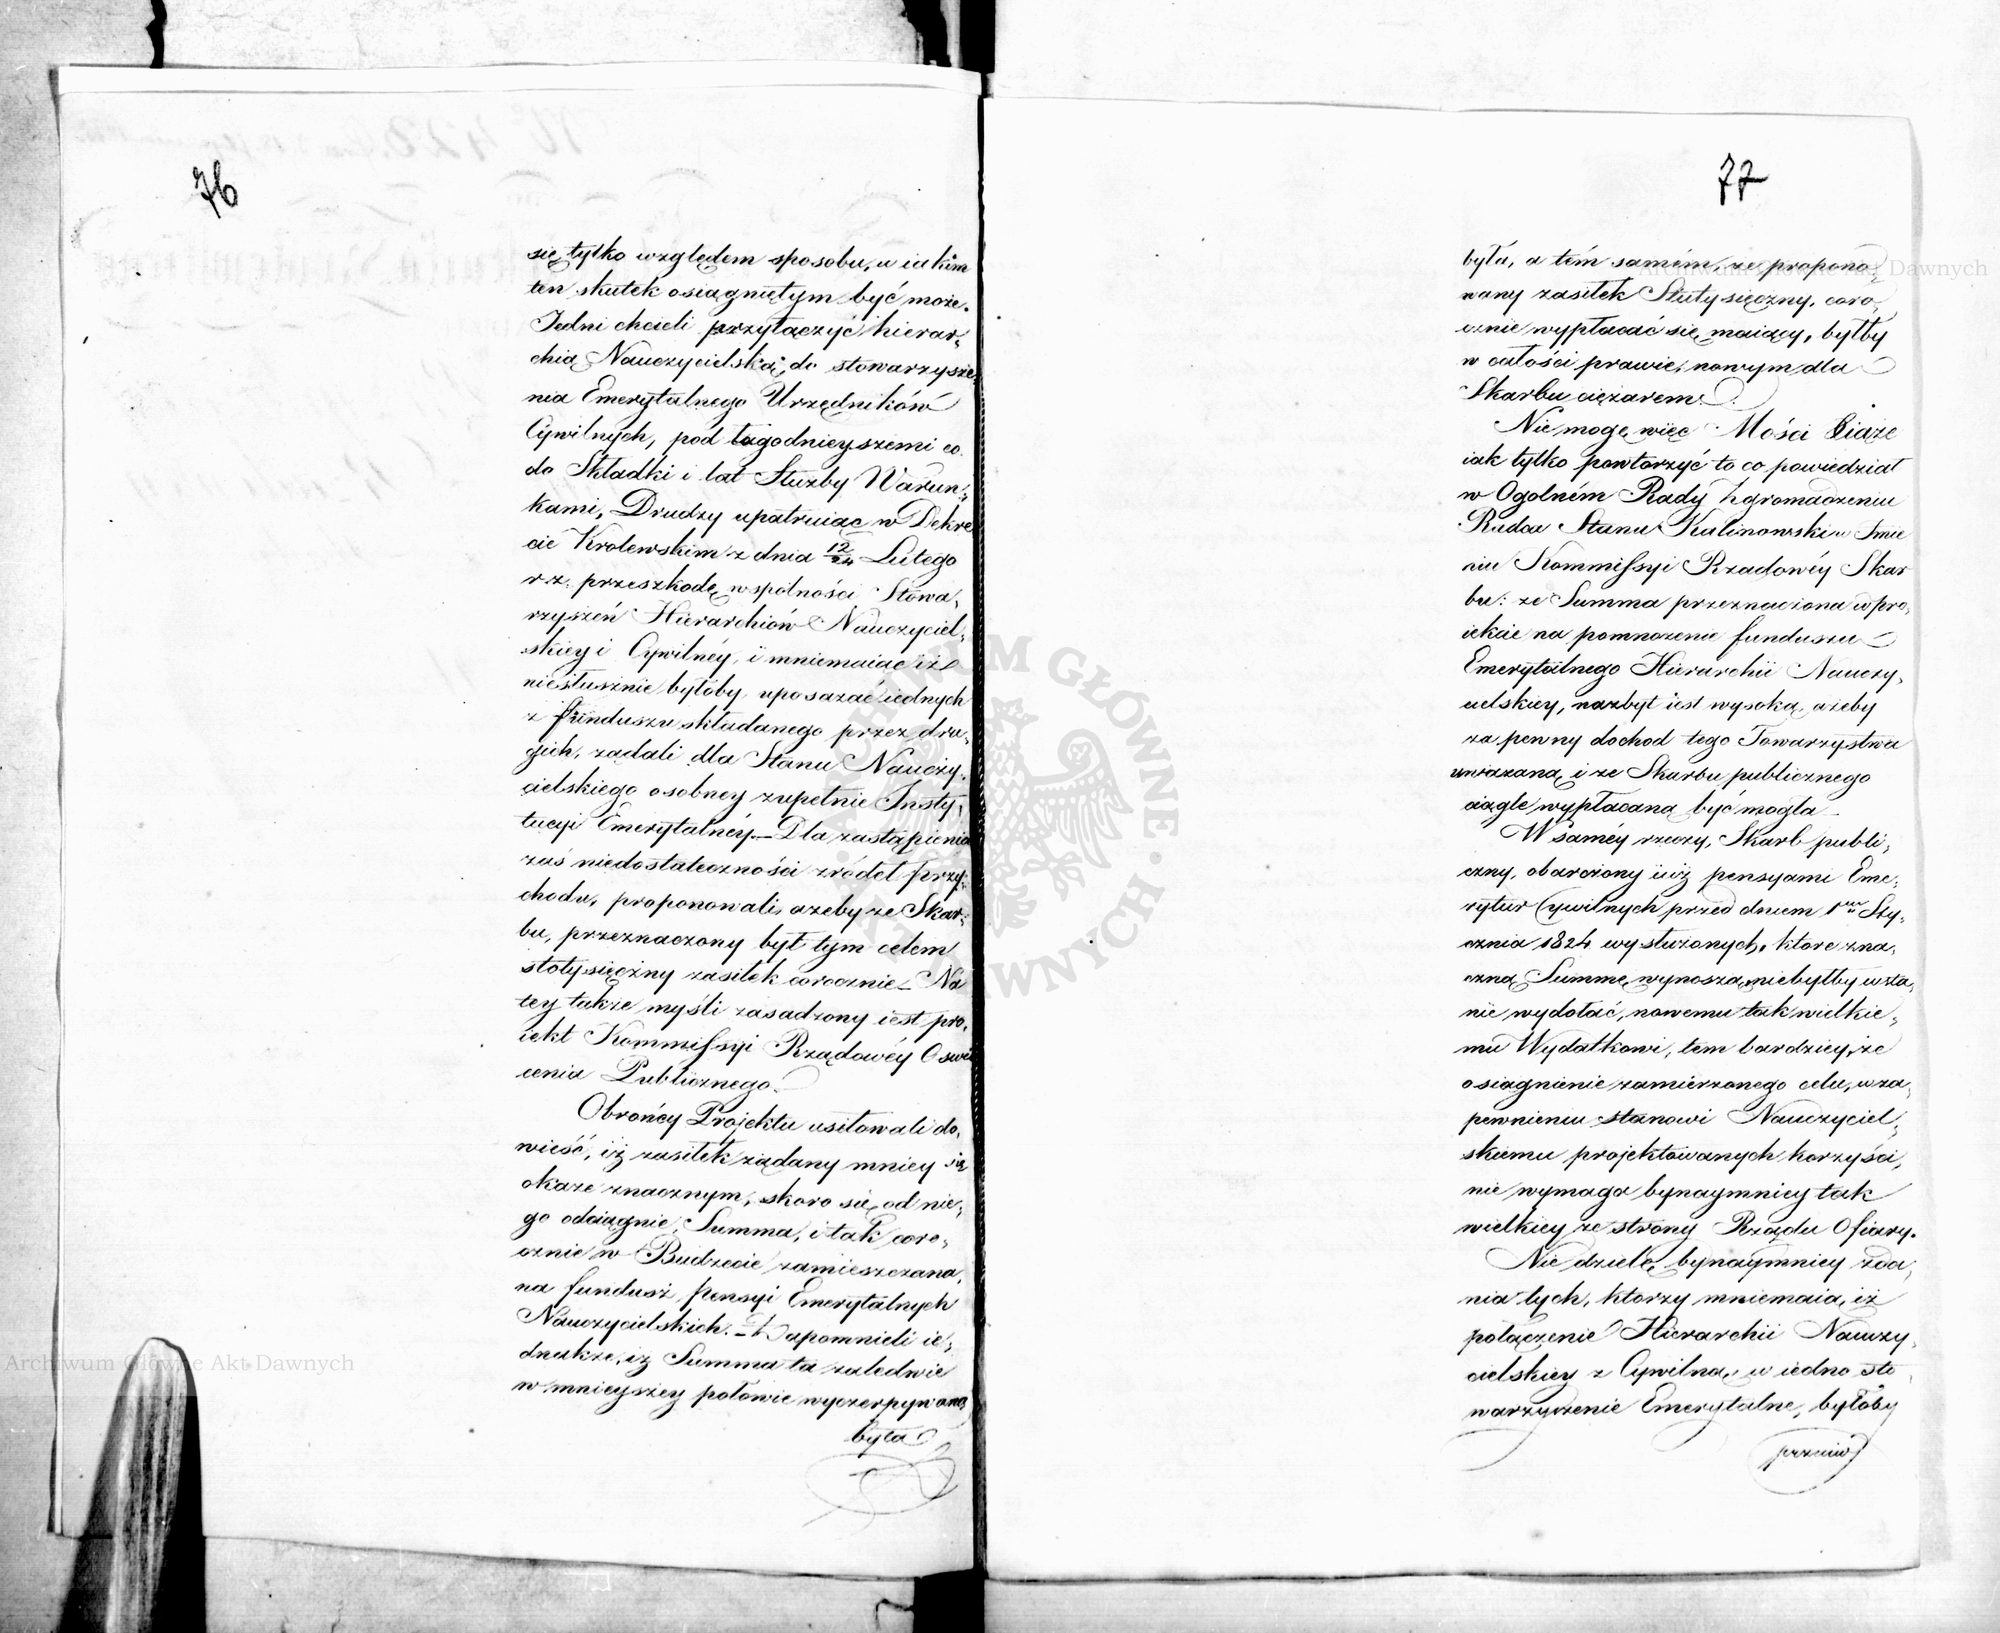 76
się tylko względem sposobu, w iakim
ten skutek osiągniętym być może.
Jedni chcieli przyłączyć hierar,
chią Nauczycielską, do stowarzysze,
nia Emerytalnego Urzędników
Cywilnych, pod łagodnieyszemi co
do Składki i lat Służby Warun,
kami, Drudzy upatruiąc w Dekre
cie Krolewskim z dnia 12/24 Lutego
r.z. przeszkodę wspólności Stowa,
rzyszeń Hierarchiów Nauczyciel,
skiey i Cywilnéy, i mniemaiąc iż
niesłusznie byłoby uposażać iednych
z funduszu składanego przez dru,
gich, żądali dla Stanu Nauczy,
cielskiego osobney zupełnie Insty,
tucyi Emerytalnéy. — Dla zastąpienia
zaś niedostateczności źródeł przy,
chodu, proponowali, ażeby ze Skar,
bu, przeznaczony był tym celem
stotysiączny zasiłek corocznie — Na
tey także myśli zasadzony iest pro,
iekt Kommissyi Rządowéy Oswie
cenia Publicznego.
Obrońcy Projektu usiłowali do,
wieść, iż zasiłek żądany mniey się
okaże znacznym, skoro się od nie,
go odciągnie Summa, i tak coro,
cznie w Budżecie zamieszczana,
na fundusz pensyi Emerytalnych
Nauczycielskich. — Zapomnieli ie,
dnakże, iż Summa ta zaledwie
w mnieyszey połowie wyczerpywaną
była
77
była, a tém samém, że propono,
wany zasiłek Stutysięczny, coro,
cznie wypłacać się maiący, byłby
w całości prawie, nowym dla
Skarbu ciężarem.
Nie mogę więc Mości Xiąże
iak tylko powtorzyć to co powiedział
w Ogolném Rady Zgromadzeniu
Radca Stanu Kalinowski w Imie
niu Kommissyi Rządowéy Skar
bu: że Summa przeznaczona w pro,
iekcie na pomnożenie funduszu
Emerytalnego Hierarchii Nauczy,
cielskiey, nazbyt iest wysoką, ażeby
za pewny dochod tego Towarzystwa
uważaną, i ze Skarbu publicznego
ciągle wypłacaną być mogła —
W saméy rzeczy, Skarb publi,
czny, obarczony iuż pensyami Eme,
rytur Cywilnych przed dniem 1m Sty,
cznia 1824 wysłużonych, ktore zna,
czną Summę wynoszą, niebyłby w sta,
nie wydołać, nowemu tak wielkie,
mu Wydatkowi, tem bardziey, że
osiągnienie zamierzonego celu, w za,
pewnieniu stanowi Nauczyciel,
skiemu projektowanych korzyści,
nie wymaga bynaymniey tak
wielkiey ze strony Rządu Ofiary.
Nie dzielę bynaymniey zda,
nia tych, ktorzy mniemaią, iż
połączenie Hierarchii Nauczy,
cielskiey z Cywilną, w iedno sto
warzyszenie Emerytalne, byłoby
przeciw
Archiwum Główne Akt Dawnych
Archiwum Główne Akt Dawnych